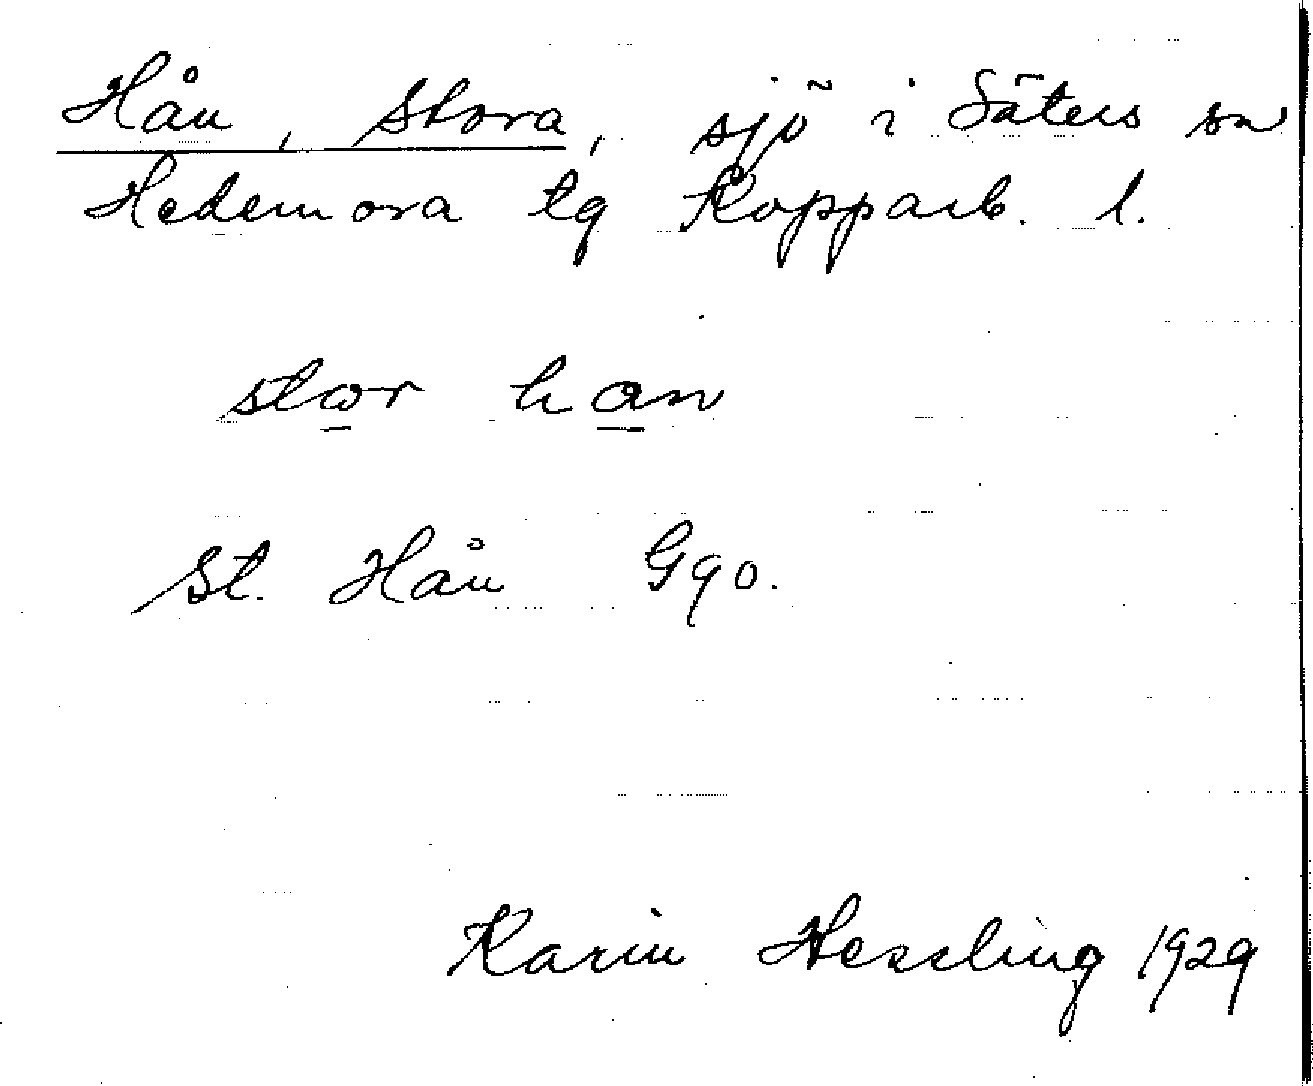 Hån, Stora, sjö i Säters sn
Hedemora tg Kopparb. l.
stor han
St. Hån Gqo.
Karin Hessling 1929